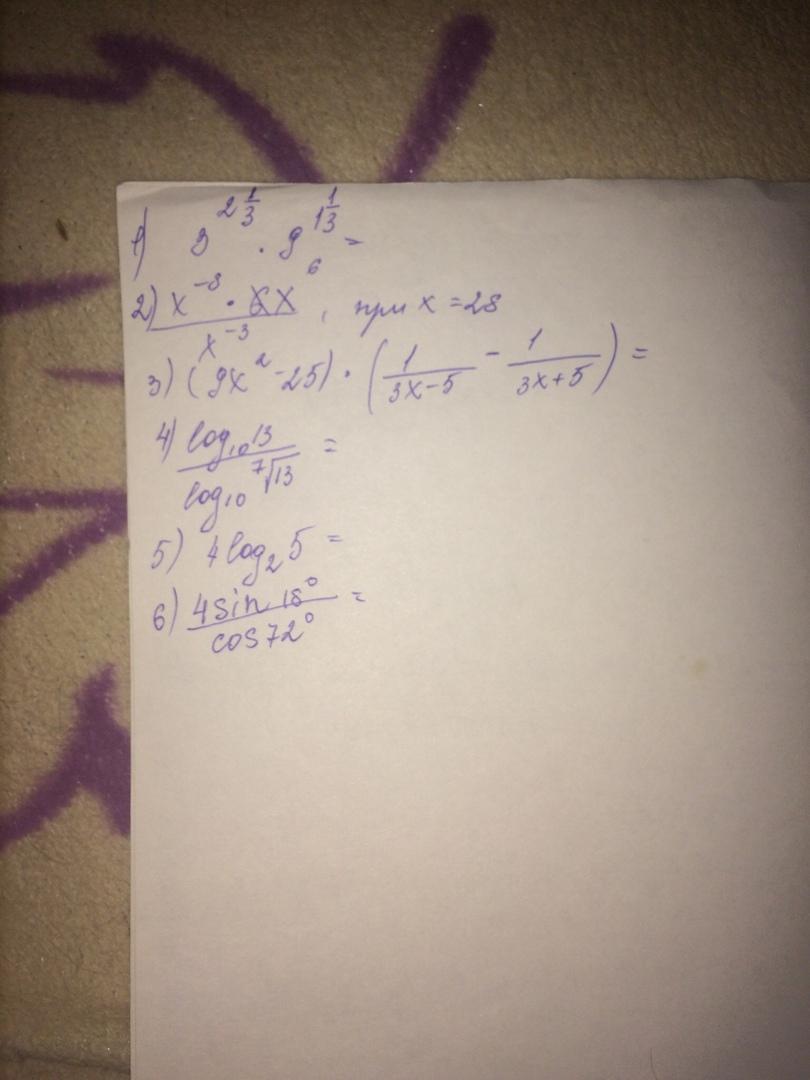 1) 3^{2\frac{1}{3}} · 9^{1\frac{1}{3}} =
2) \frac{x^{-8} · x^{6}}{x^{-3}}, при x = 28
3) (9x^{2} - 25) · (\frac{1}{3x-5} - \frac{1}{3x+5}) =
4) \frac{log_{10} 13}{log_{10} \sqrt[7]{13}} =
5) 4log_{2} 5 =
6) \frac{4 sin 18°}{cos 72°} =